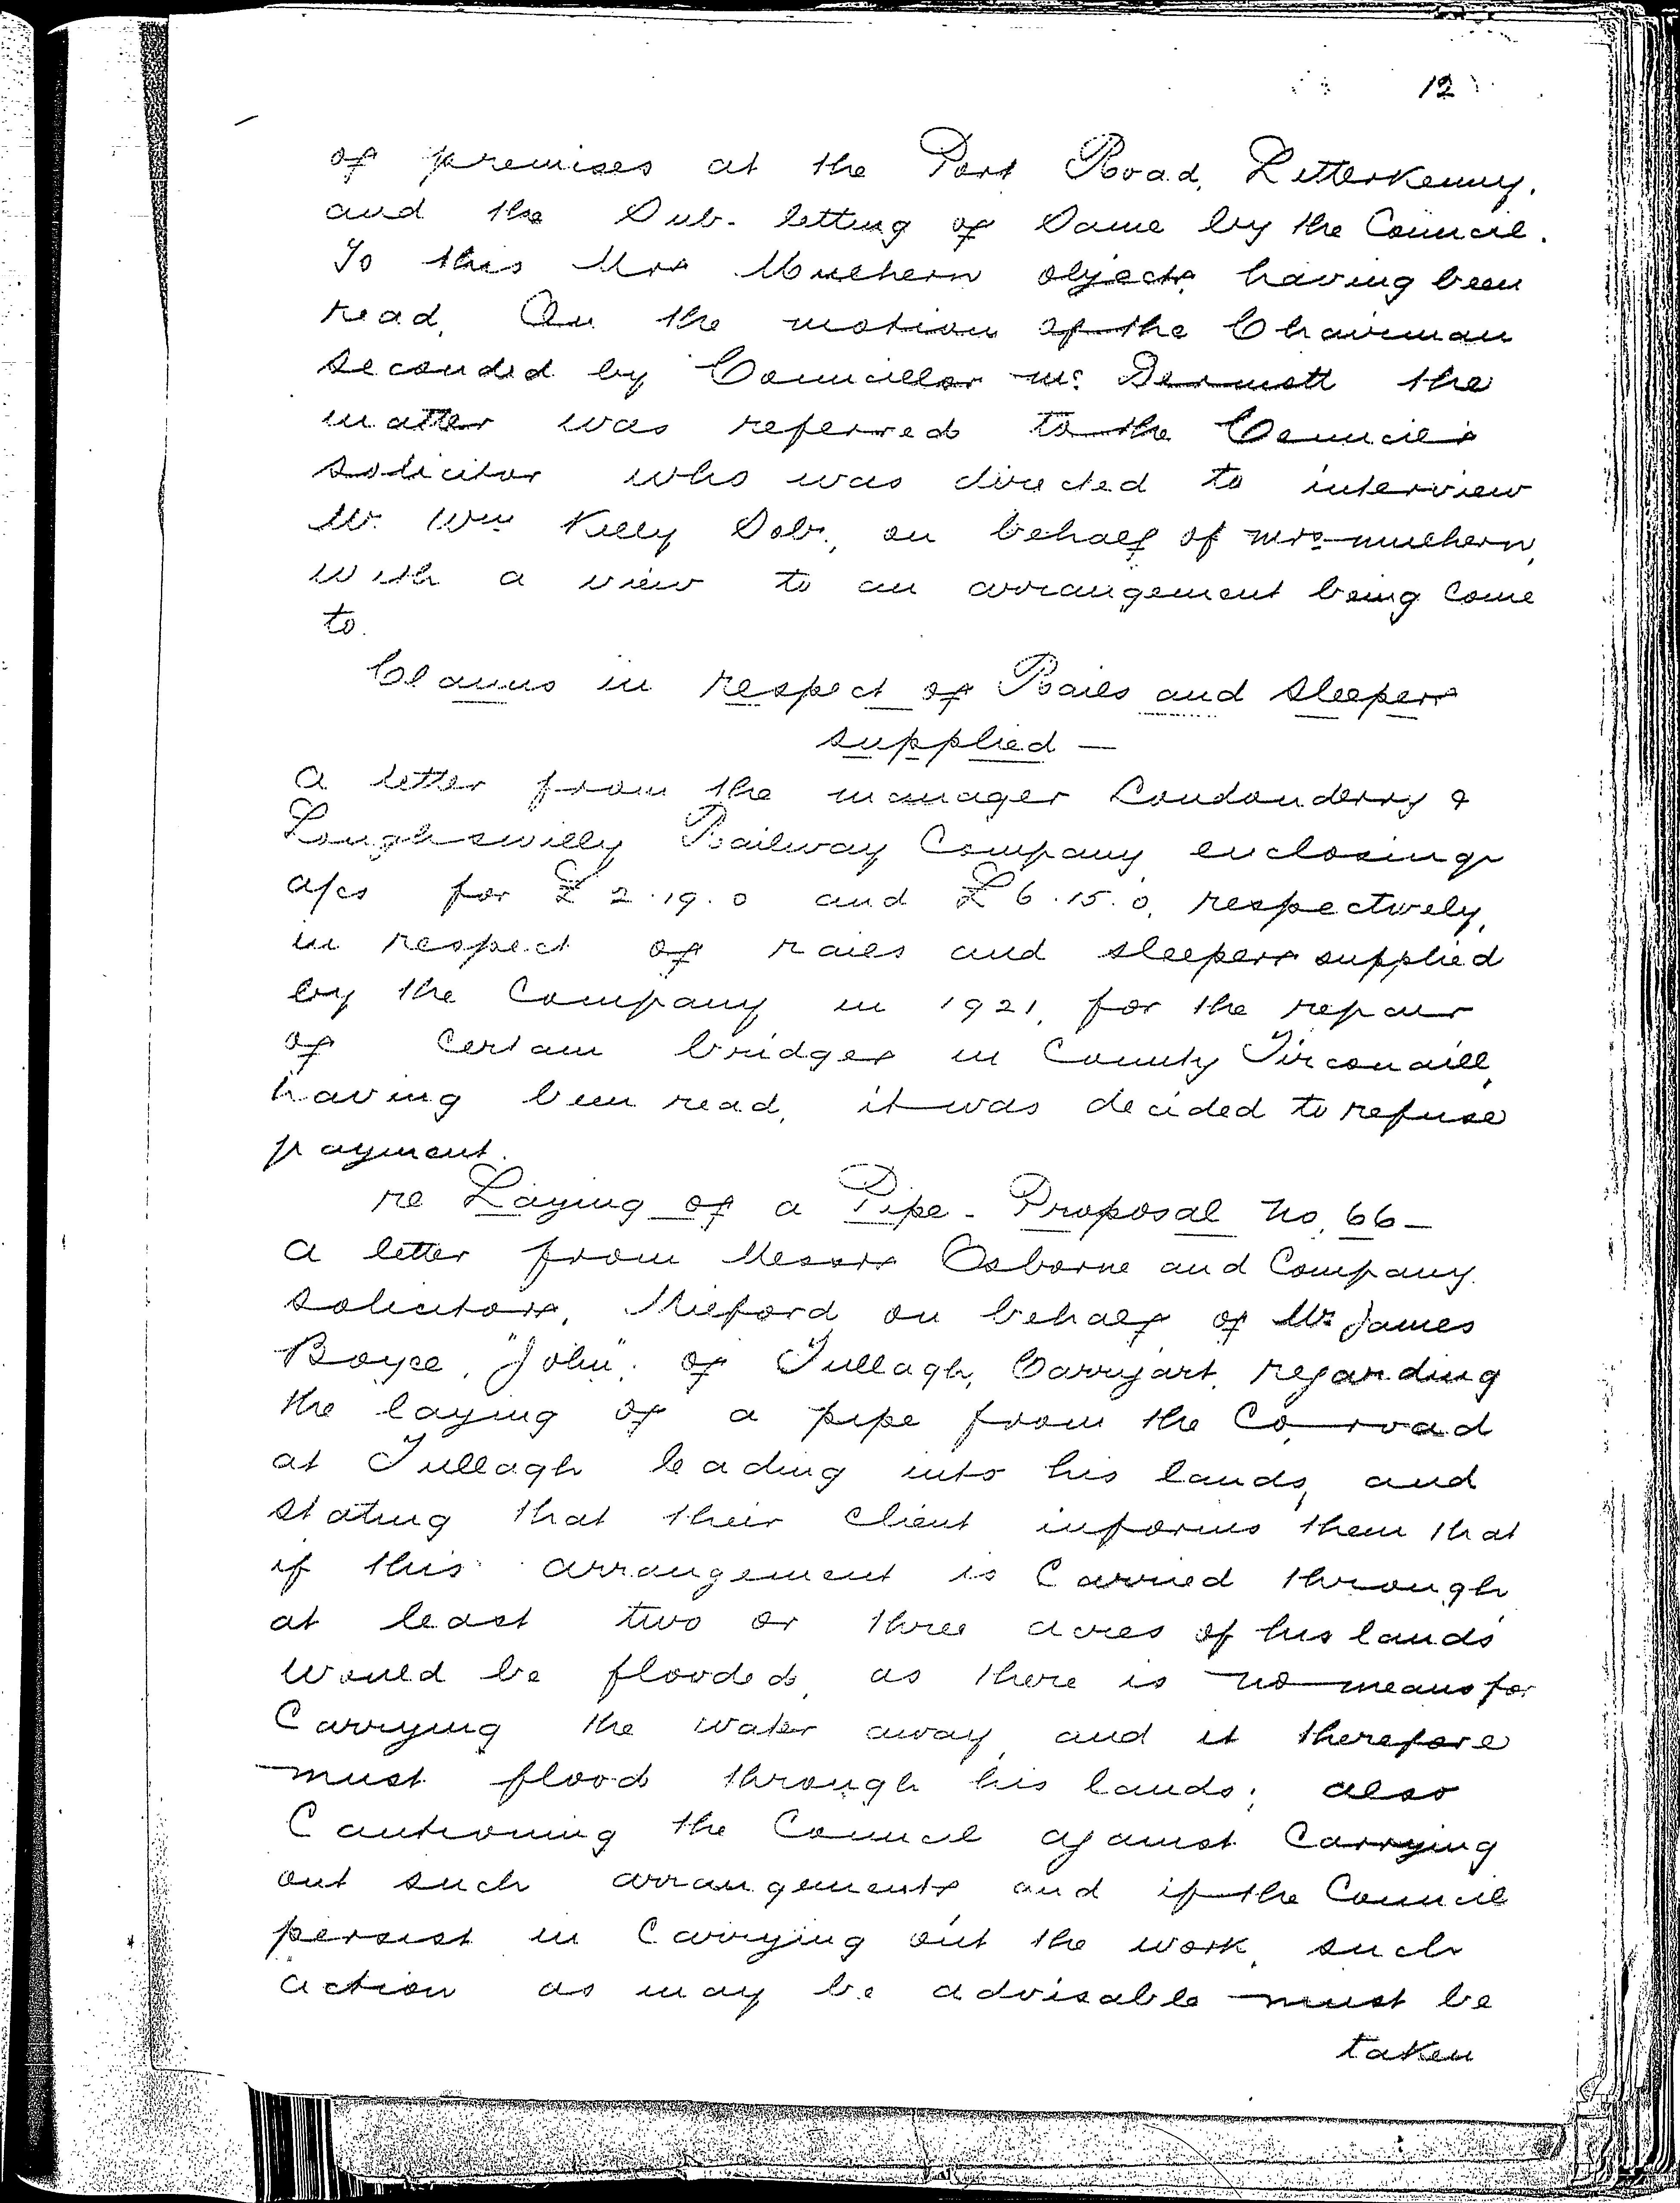 12
of premises at the Port Road, Letterkenny.
and the Sub-letting of Same by the Council.
To this Mrs Mulhern objects, having been
read, On the motion of the Chairman
seconded by Councillor Mc Dermott the
matter was referred to the Council's
solicitor who was directed to interview
Mr. Wm Kelly Solr., on behalf of Mrs Mulhern,
with a view to an arrangement being come
to.
Claims in respect of Rails and Sleepers
supplied —
A letter from the manager Londonderry &
Loughswilly Railway Company enclosing
a/cs for £2.19.0 and £6.15.0, respectively,
in respect of rails and sleepers supplied
by the Company in 1921, for the repair
of certain bridges in County Tirconaill,
having been read, it was decided to refuse
payment.
re Laying of a Pipe - Proposal No. 66 —
A letter from Messrs Osborne and Company
solicitors, Milford on behalf of Mr James
Boyce, "John", of Tullagh, Carrigart, regarding
the laying of a pipe from the Co. road
at Tullagh leading into his lands, and
stating that their client informs them that
if this arrangement is carried through
at least two or three acres of his lands
would be flooded, as there is no means for
Carrying the water away, and it therefore
must flood through his lands; also
Cautioning the Council against Carrying
out such arrangements, and if the Council
persist in Carrying out the work, such
action as may be advisable must be
taken